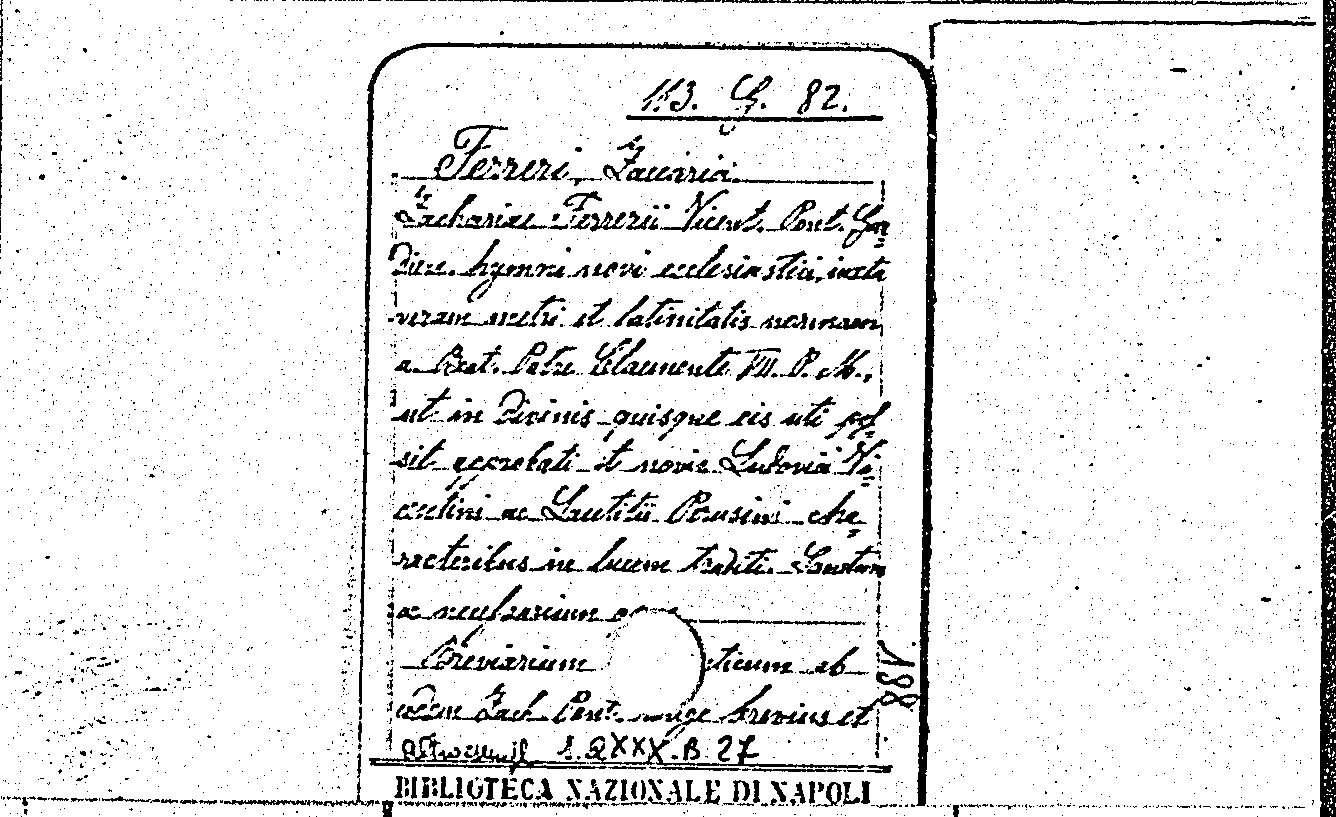 113. G. 82.
Ferreri, Zaccaria
Zachariae Ferrerii Vicent. Pont. Gar-
dien. hymni novi ecclesiastici, iuxta
veram metri et latinitatis normam
a Beat. Patre Claemente VII. P. M.,
ut in divinis quisque eis uti pos-
sit approbati et novis Ludovici Vi-
centini ac Lautitii Perusini cha-
racteribus in lucem traditi. Sanctum
ac necessarium
Breviarium ticum ab
eodem Zach. Pont. longe brevius et
S. Q XXX. B. 27
188
BIBLIOTECA NAZIONALE DI NAPOLI